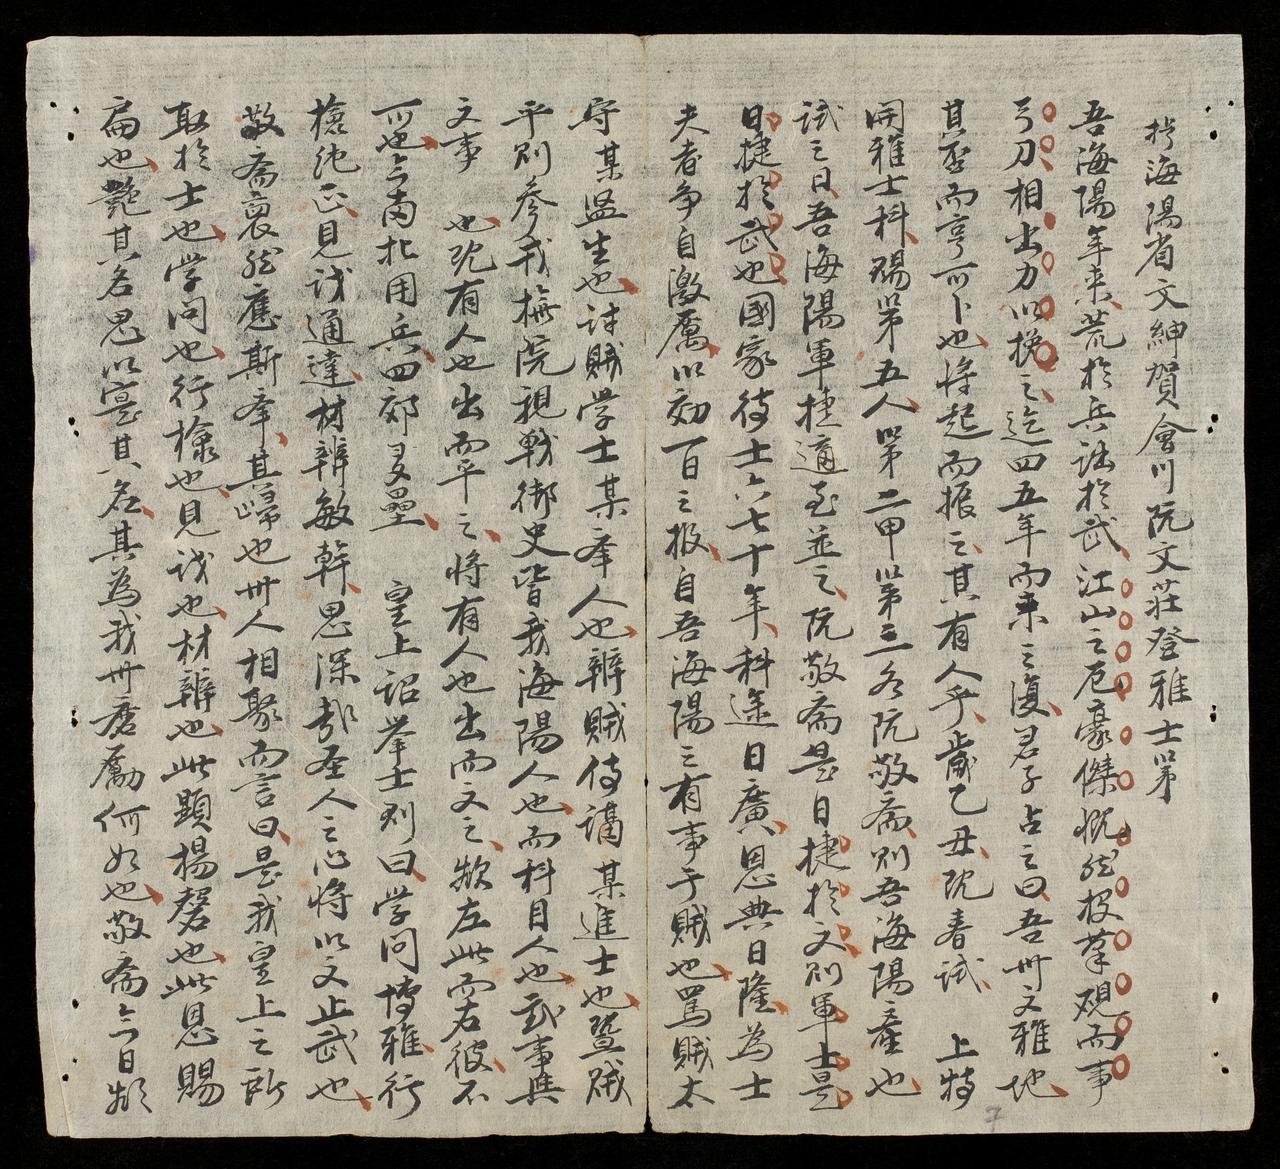 海陽省文紳賀會川阮文莊登雅士第
吾海陽年來荒於兵詘於武江山之厄豪傑慨然投筆硯而事
弓刀相出力以挽之迄四五年而来之復君子占之曰吾卅文雅地
其否而亨可卜也将起而振之其有人乎歲乙丑阮春試 上特
開雅士科賜第五人第二甲第三名阮敬斎則吾海陽産也
試之日吾海陽軍捷適至並之阮敬斎是日捷於文則軍士是
日捷於武也國家待士六七十年科途日廣恩典日隆為士
夫者争自激厲以効一日之报自吾海陽之有事于賊也罵賊太
守某監生也討賊学士某举人也辨賊侍講某進士也暨賊
平則参我撫院視戰御史皆我海陽人也而科目人也武事與
文事 也既有人也出而平之将有人也出而文之 左此而右彼不
可也今南北用兵四郊多壘 皇上詔举士則曰学問博雅行
檢純正見识通達材辨敏幹思深哉圣人之心将以文止武也
敬斎裒然應斯举其歸也卅人相聚而言曰是我皇上之所
取於士也学問也行檢也見识也材辨也此顯揚 也此恩賜
扁也艷其名思以寔其名其為我卅磨勵何如也敬斎今日